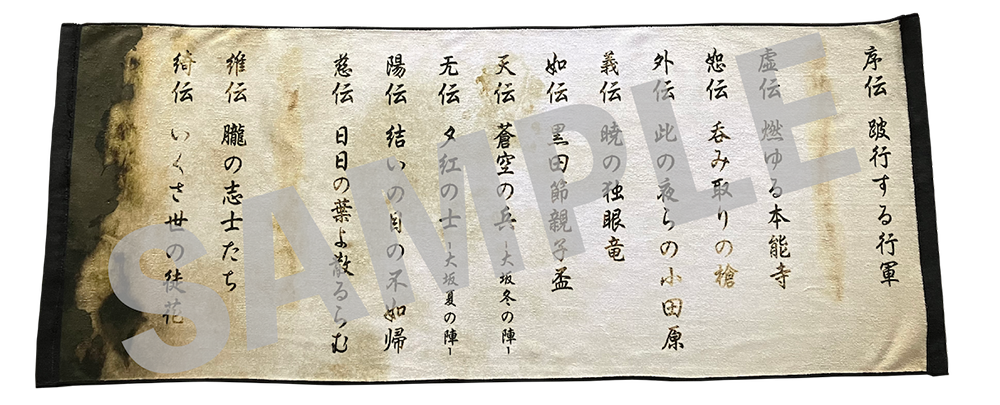 序伝 跛行する行軍
虚伝 燃ゆる本能寺
恕伝 呑み取りの槍
外伝 此の夜らの小田原
義伝 暁の独眼竜
如伝 黒田節親子盃
天伝 蒼空の兵 -大坂冬の陣-
无伝 夕紅の士 -大坂夏の陣-
陽伝 結いの目の不如帰
慈伝 日日の葉よ散るらむ
維伝 朧の志士たち
綺伝 いくさ世の徒花
SAMPLE